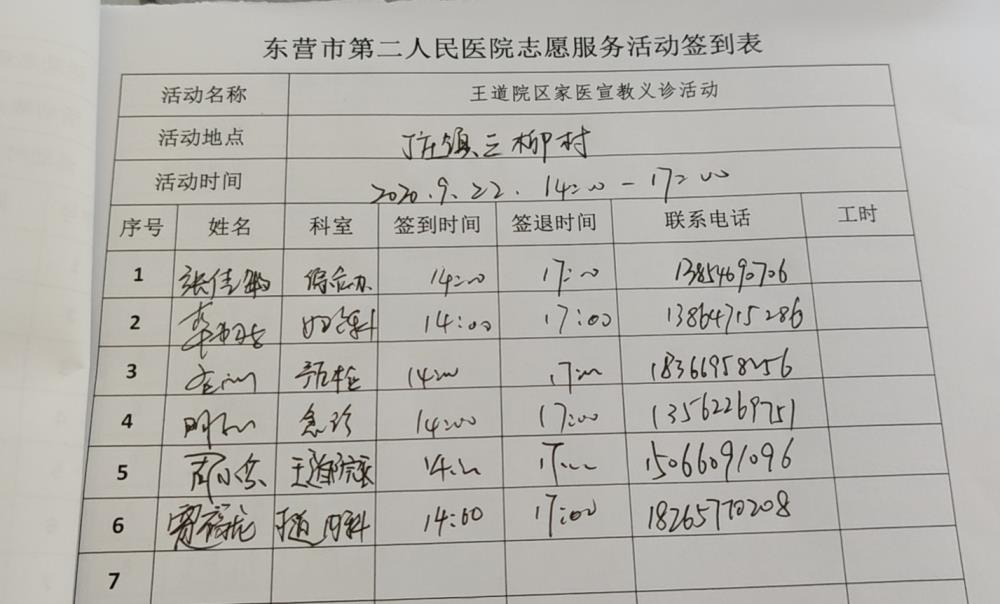 东营市第二人民医院志愿服务活动签到表
活动名称 王道院区家医宣教义诊活动
活动地点 庄镇三柳村
活动时间 2020.9.22. 14:00-17:00
序号 姓名 科室 签到时间 签退时间 联系电话 工时
1 张佳 综合办 14:00 17:00 13854690706
2 14:00 17:00 13864715286
3 14:00 17:00 18366958256
4 急诊 14:00 17:00 13562269751
5 周小 王道院区 14:00 17:00 15066091096
6 贾 王道内科 14:00 17:00 18265770208
7